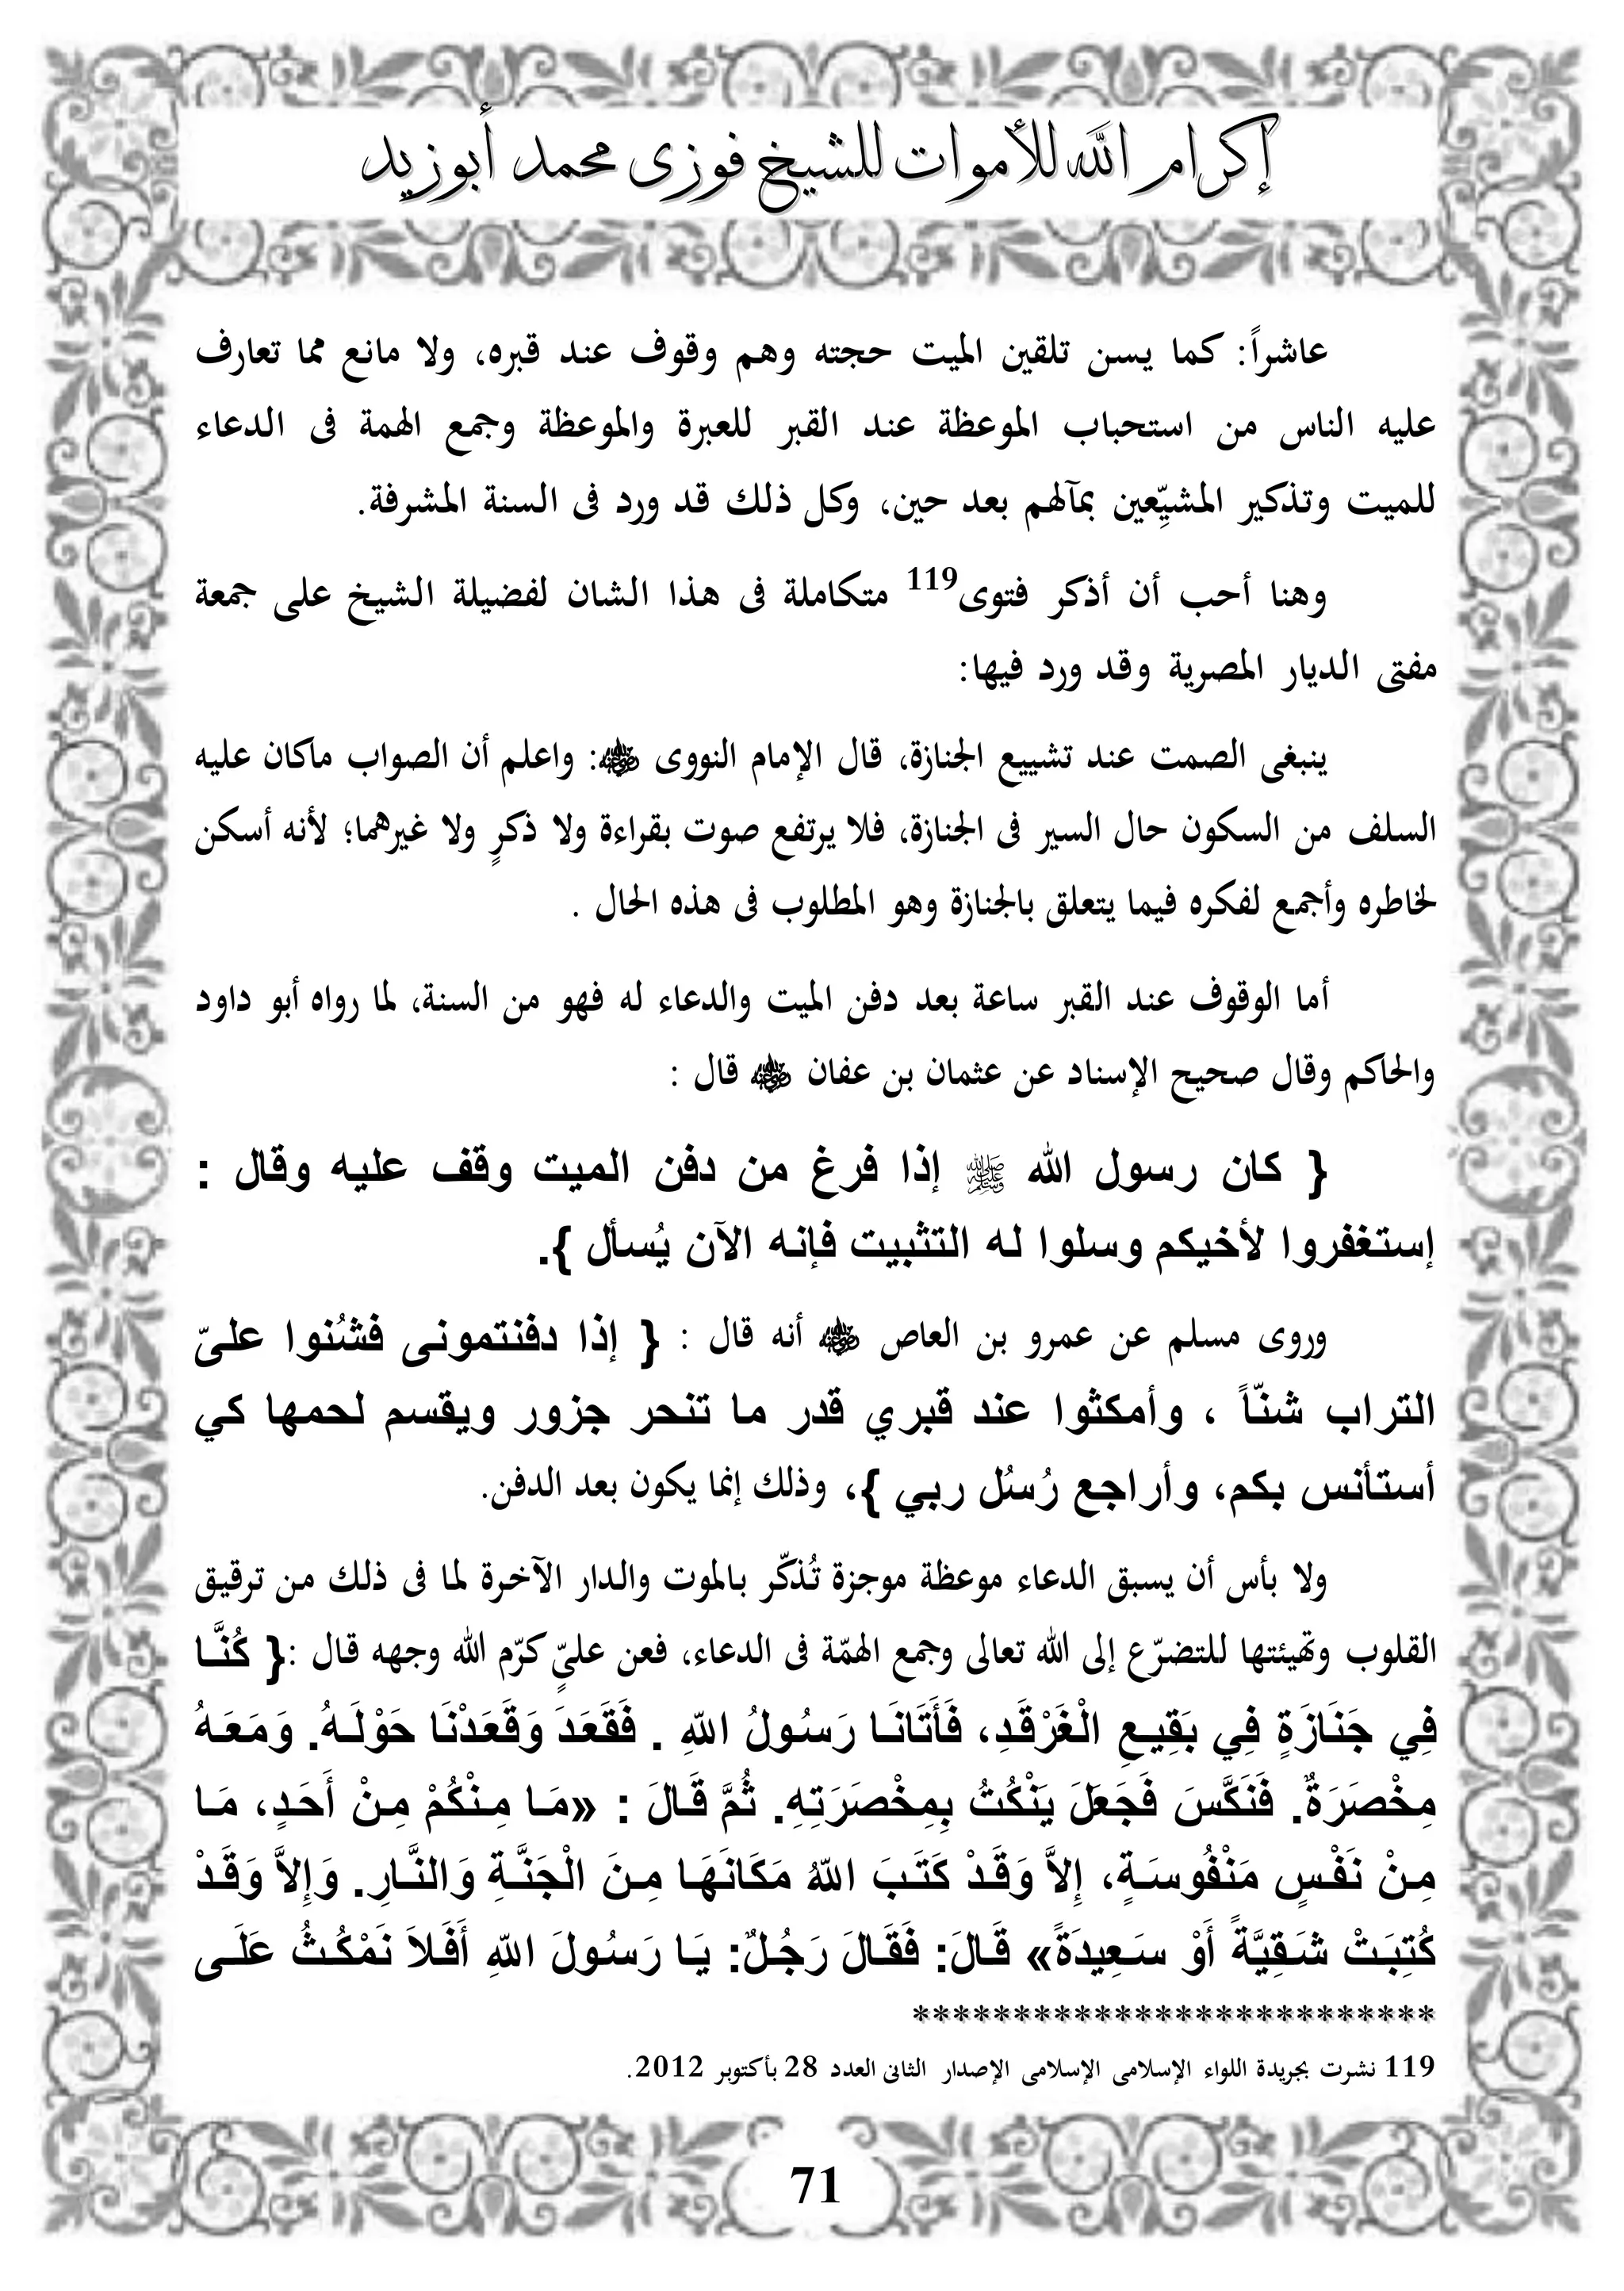 إكرام الله للأموات للشيخ فوزى محمد أبوزيد
عاشراً: كما يسن تلقين الميت حجته وهم وقوف عند قبره، ولا مانع مما تعارف
عليه الناس من استحباب الموعظة عند القبر للعبرة والموعظة وجمع الهمة فى الدعاء
للميت وتذكير المشيِّعين بمآلهم بعد حين، وكل ذلك قد ورد فى السنة المشرفة.
وهنا أحب أن أذكر فتوى119 متكاملة فى هذا الشان لفضيلة الشيخ على جمعة
مفتى الديار المصرية وقد ورد فيها:
ينبغى الصمت عند تشييع الجنازة، قال الإمام النووى ﵁: واعلم أن الصواب ماكان عليه
السلف من السكون حال السير فى الجنازة، فلا يرتفع صوت بقراءة ولا ذكرٍ ولا غيرهما؛ لأنه أسكن
لخاطره وأجمع لفكره فيما يتعلق بالجنازة وهو المطلوب فى هذه الحال .
أما الوقوف عند القبر ساعة بعد دفن الميت والدعاء له فهو من السنة، لما رواه أبو داود
والحاكم وقال صحيح الإسناد عن عثمان بن عفان ﵁ قال :
{ كان رسول الله ﷺ إذا فرغ من دفن الميت وقف عليه وقال :
إستغفروا لأخيكم وسلوا له التثبيت فإنه الآن يُسأل }.
وروى مسلم عن عمرو بن العاص ﵁ أنه قال : { إذا دفنتمونى فشُنوا علىّ
التراب شنّاً ، وأمكثوا عند قبري قدر ما تنحر جزور ويقسم لحمها كي
أستأنس بكم، وأراجع رُسُل ربي }، وذلك إنما يكون بعد الدفن.
ولا بأس أن يسبق الدعاء موعظة موجزة تُذكّر بالموت والدار الآخرة لما فى ذلك من ترقيق
القلوب وتهيئتها للتضرّع إلى الله تعالى وجمع الهمّة فى الدعاء، فعن علىٍّ كرّم الله وجهه قال :{ كُنَّا
فِي جَنَازَةٍ فِي بَقِيعِ الْغَرْقَدِ، فَأَتَانَا رَسُولُ اللهِ . فَقَعَدَ وَقَعَدْنَا حَوْلَهُ. وَمَعَهُ
مِخْصَرَةٌ. فَنَكَّسَ فَجَعَلَ يَنْكُتُ بِمِخْصَرَتِهِ. ثُمَّ قَالَ : «مَا مِنْكُمْ مِنْ أَحَدٍ، مَا
مِنْ نَفْسٍ مَنْفُوسَةٍ، إِلاَّ وَقَدْ كَتَبَ اللهُ مَكَانَهَا مِنَ الْجَنَّةِ وَالنَّارِ. وَإِلاَّ وَقَدْ
كُتِبَتْ شَقِيَّةً أَوْ سَعِيدَةً» قَالَ: فَقَالَ رَجُلٌ: يَا رَسُولَ اللهِ أَفَلاَ نَمْكُثُ عَلَى
**************************
119 نشرت بجريدة اللواء الإسلامى الإسلامى الإصدار الثانى العدد 28 بأكتوبر 2012.
71